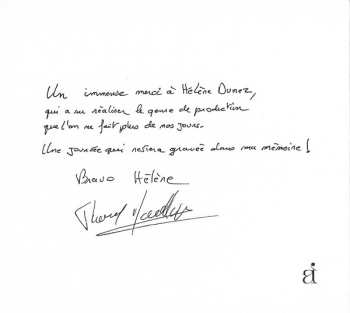 Un immense merci à Hélène Dunez,
qui a su réaliser le genre de production
que l'on ne fait plus de nos jours.
Une journée qui restera gravée dans ma mémoire !
Bravo Hélène